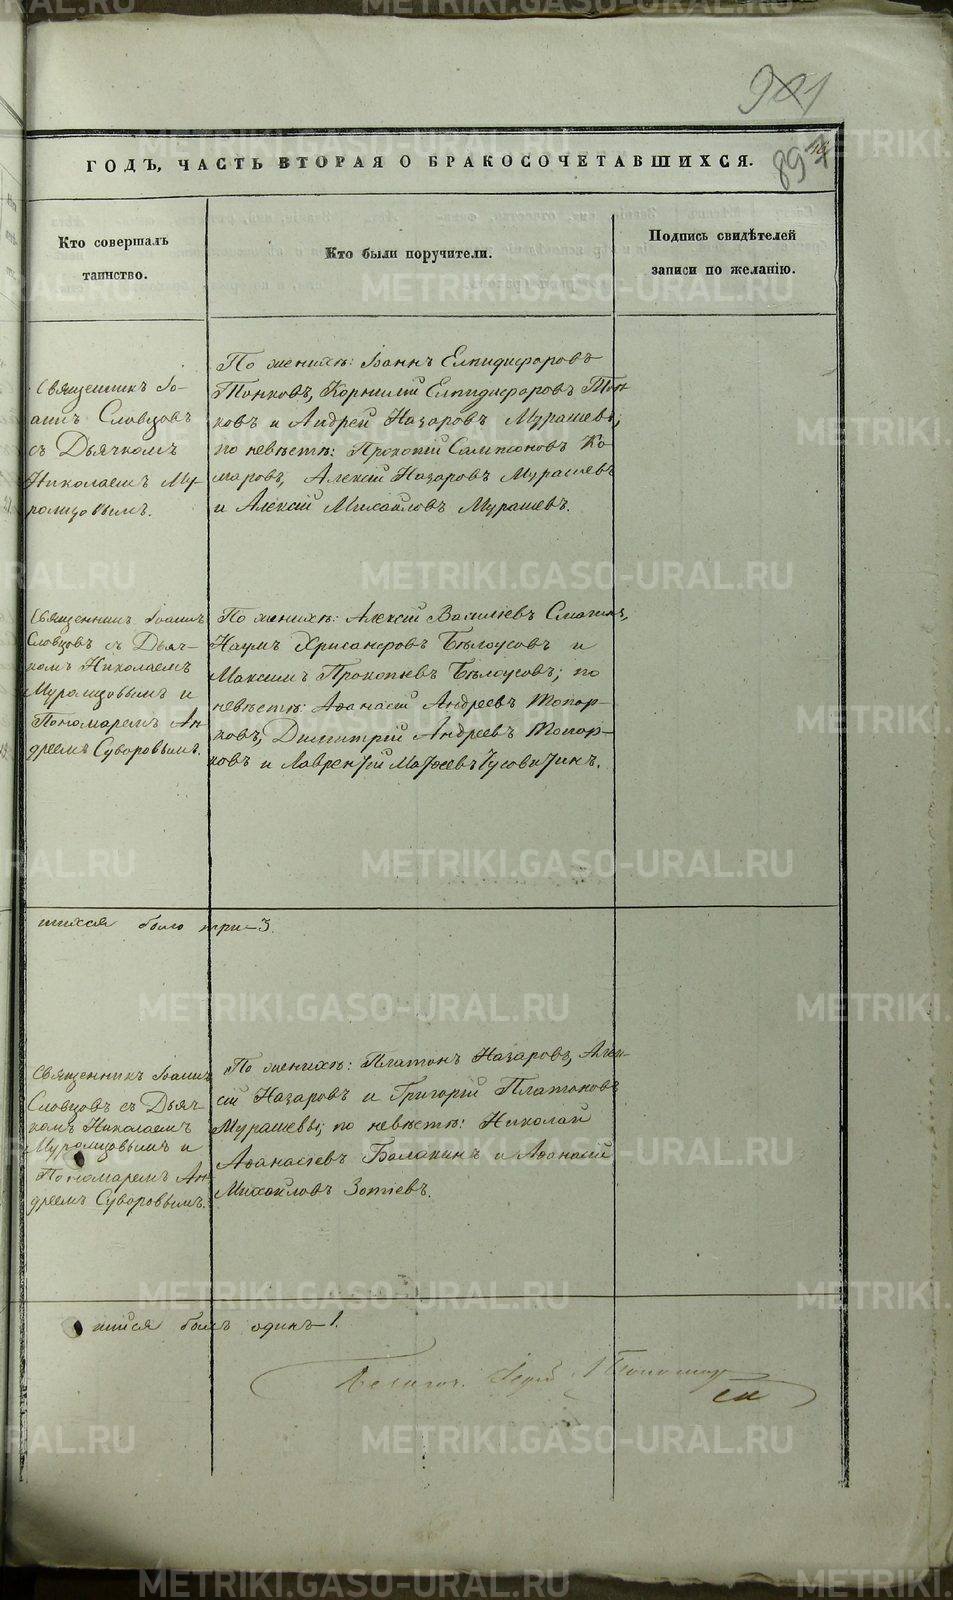 901
ГОДЪ, ЧАСТЬ ВТОРАЯ О БРАКОСОЧЕТАВШИХСЯ.
89
Кто совершалъ
таинство.
Кто были поручители.
Подпись свидѣтелей
записи по желанію.
Священникъ Іо-
аннъ Словцовъ
съ Дьячкомъ
Николаемъ Му-
ромцовымъ.
По женихѣ: Іоаннъ Елпидифоровъ
Топковъ, Корнилій Елпидифоровъ Топ
ковъ и Андрей Назаровъ Мурашевъ;
по невѣстѣ: Прокопій Сампсоновъ Ко
маровъ, Алексій Назаровъ Мурашевъ
и Алексій Михайловъ Мурашевъ.
Священникъ Іоаннъ
Словцовъ съ Дьяч-
комъ Николаемъ
Муромцовымъ и
Пономаремъ Ан-
дреемъ Суворовымъ.
По женихѣ: Алексій Василіевъ Смагинъ,
Наумъ Хрисанфовъ Бѣлоусовъ и
Максимъ Прокопьевъ Бѣлоусовъ; по
невѣстѣ: Аѳанасій Андреевъ Топор-
ковъ, Димитрій Андреевъ Топор-
ковъ и Лаврентій Матѳеевъ Чусовитинъ.
шихся было три-3.
Священникъ Іоаннъ
Словцовъ съ Дьяч-
комъ Николаемъ
Муромцовымъ и
Пономаремъ Ан-
дреемъ Суворовымъ.
По женихѣ: Платонъ Назаровъ, Алек-
сій Назаровъ и Григорій Платоновъ
Мурашевы; по невѣстѣ: Николай
Аѳанасіевъ Балакинъ и Аѳанасій
Михайловъ Зотіевъ.
шійся былъ одинъ-1.
METRIKI.GASO-URAL.RU